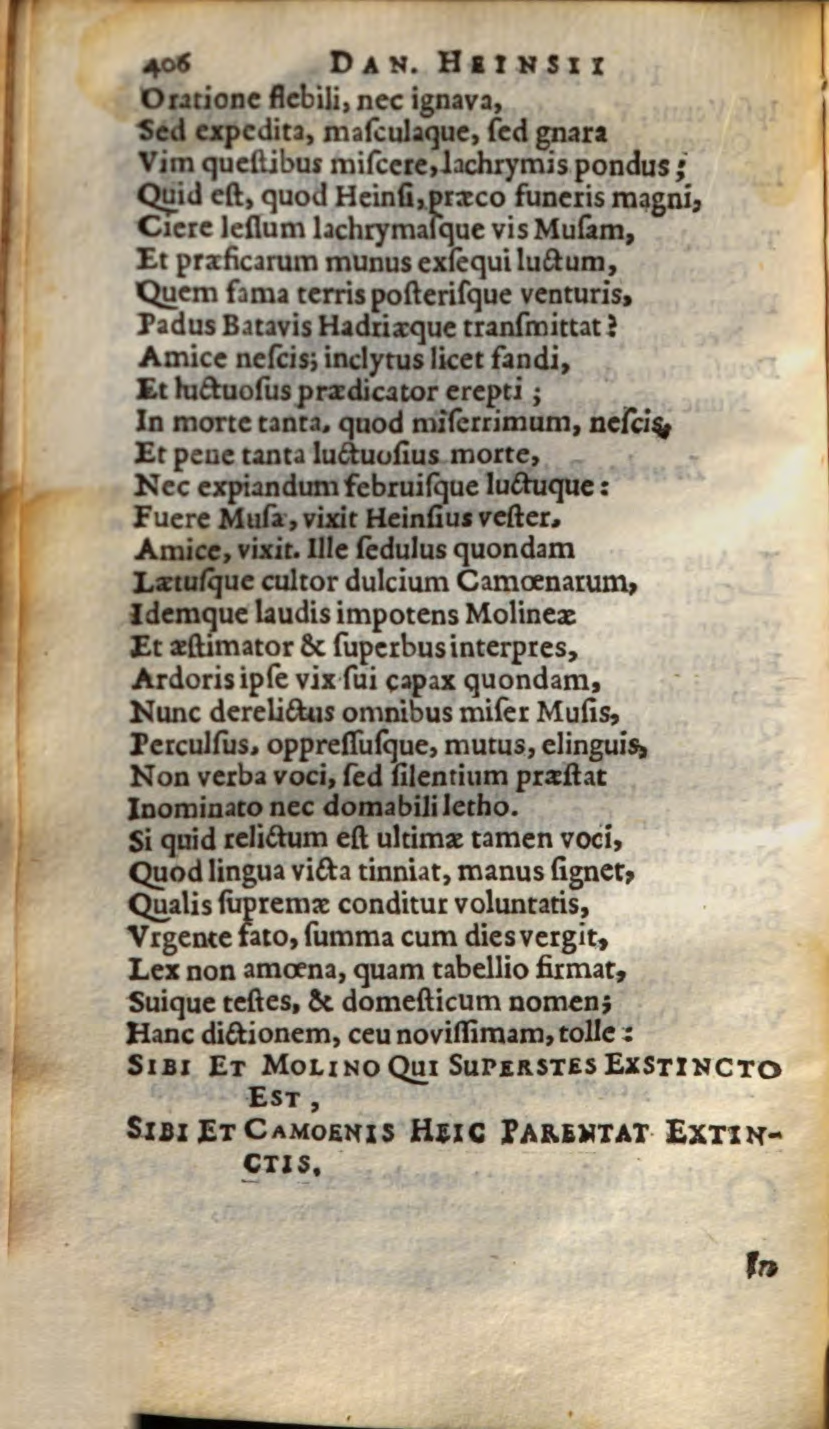 406 DAN. HEINSII
Oratione flebili, nec ignava,
Sed expedita, maſculaque, ſed gnara
Vim queſtibus miſcere, lachrymis pondus;
Quid eſt, quod Heinſi, præco funeris magni,
Ciere leſſum lachrymaſque vis Muſam,
Et præficarum munus exſequi luctum,
Quem fama terris poſteriſque venturis,
Padus Batavis Hadriæque tranſmittat?
Amice neſcis; inclytus licet fandi,
Et luctuoſus prædicator erepti;
In morte tanta, quod miſerrimum, neſcis,
Et pene tanta luctuoſius morte,
Nec expiandum februiſque luctuque:
Fuere Muſa, vixit Heinſius veſter.
Amice, vixit. Ille ſedulus quondam
Lætuſque cultor dulcium Camœnarum,
Idemque laudis impotens Molineæ
Et æſtimator & ſuperbus interpres,
Ardoris ipſe vix ſui capax quondam,
Nunc derelictus omnibus miſer Muſis,
Perculſus, oppreſſuſque, mutus, elinguis,
Non verba voci, ſed ſilentium præſtat
Inominato nec domabili letho.
Si quid relictum eſt ultimæ tamen voci,
Quod lingua victa tinniat, manus ſignet,
Qualis ſupremæ conditur voluntatis,
Vrgente fato, ſumma cum dies vergit,
Lex non amœna, quam tabellio firmat,
Suique teſtes, & domeſticum nomen;
Hanc dictionem, ceu noviſſimam, tolle:
SIBI ET MOLINO QUI SUPERSTES EXSTINCTO
EST,
SIBI ET CAMOENIS HEIC PARENTAT EXTIN-
CTIS.
In